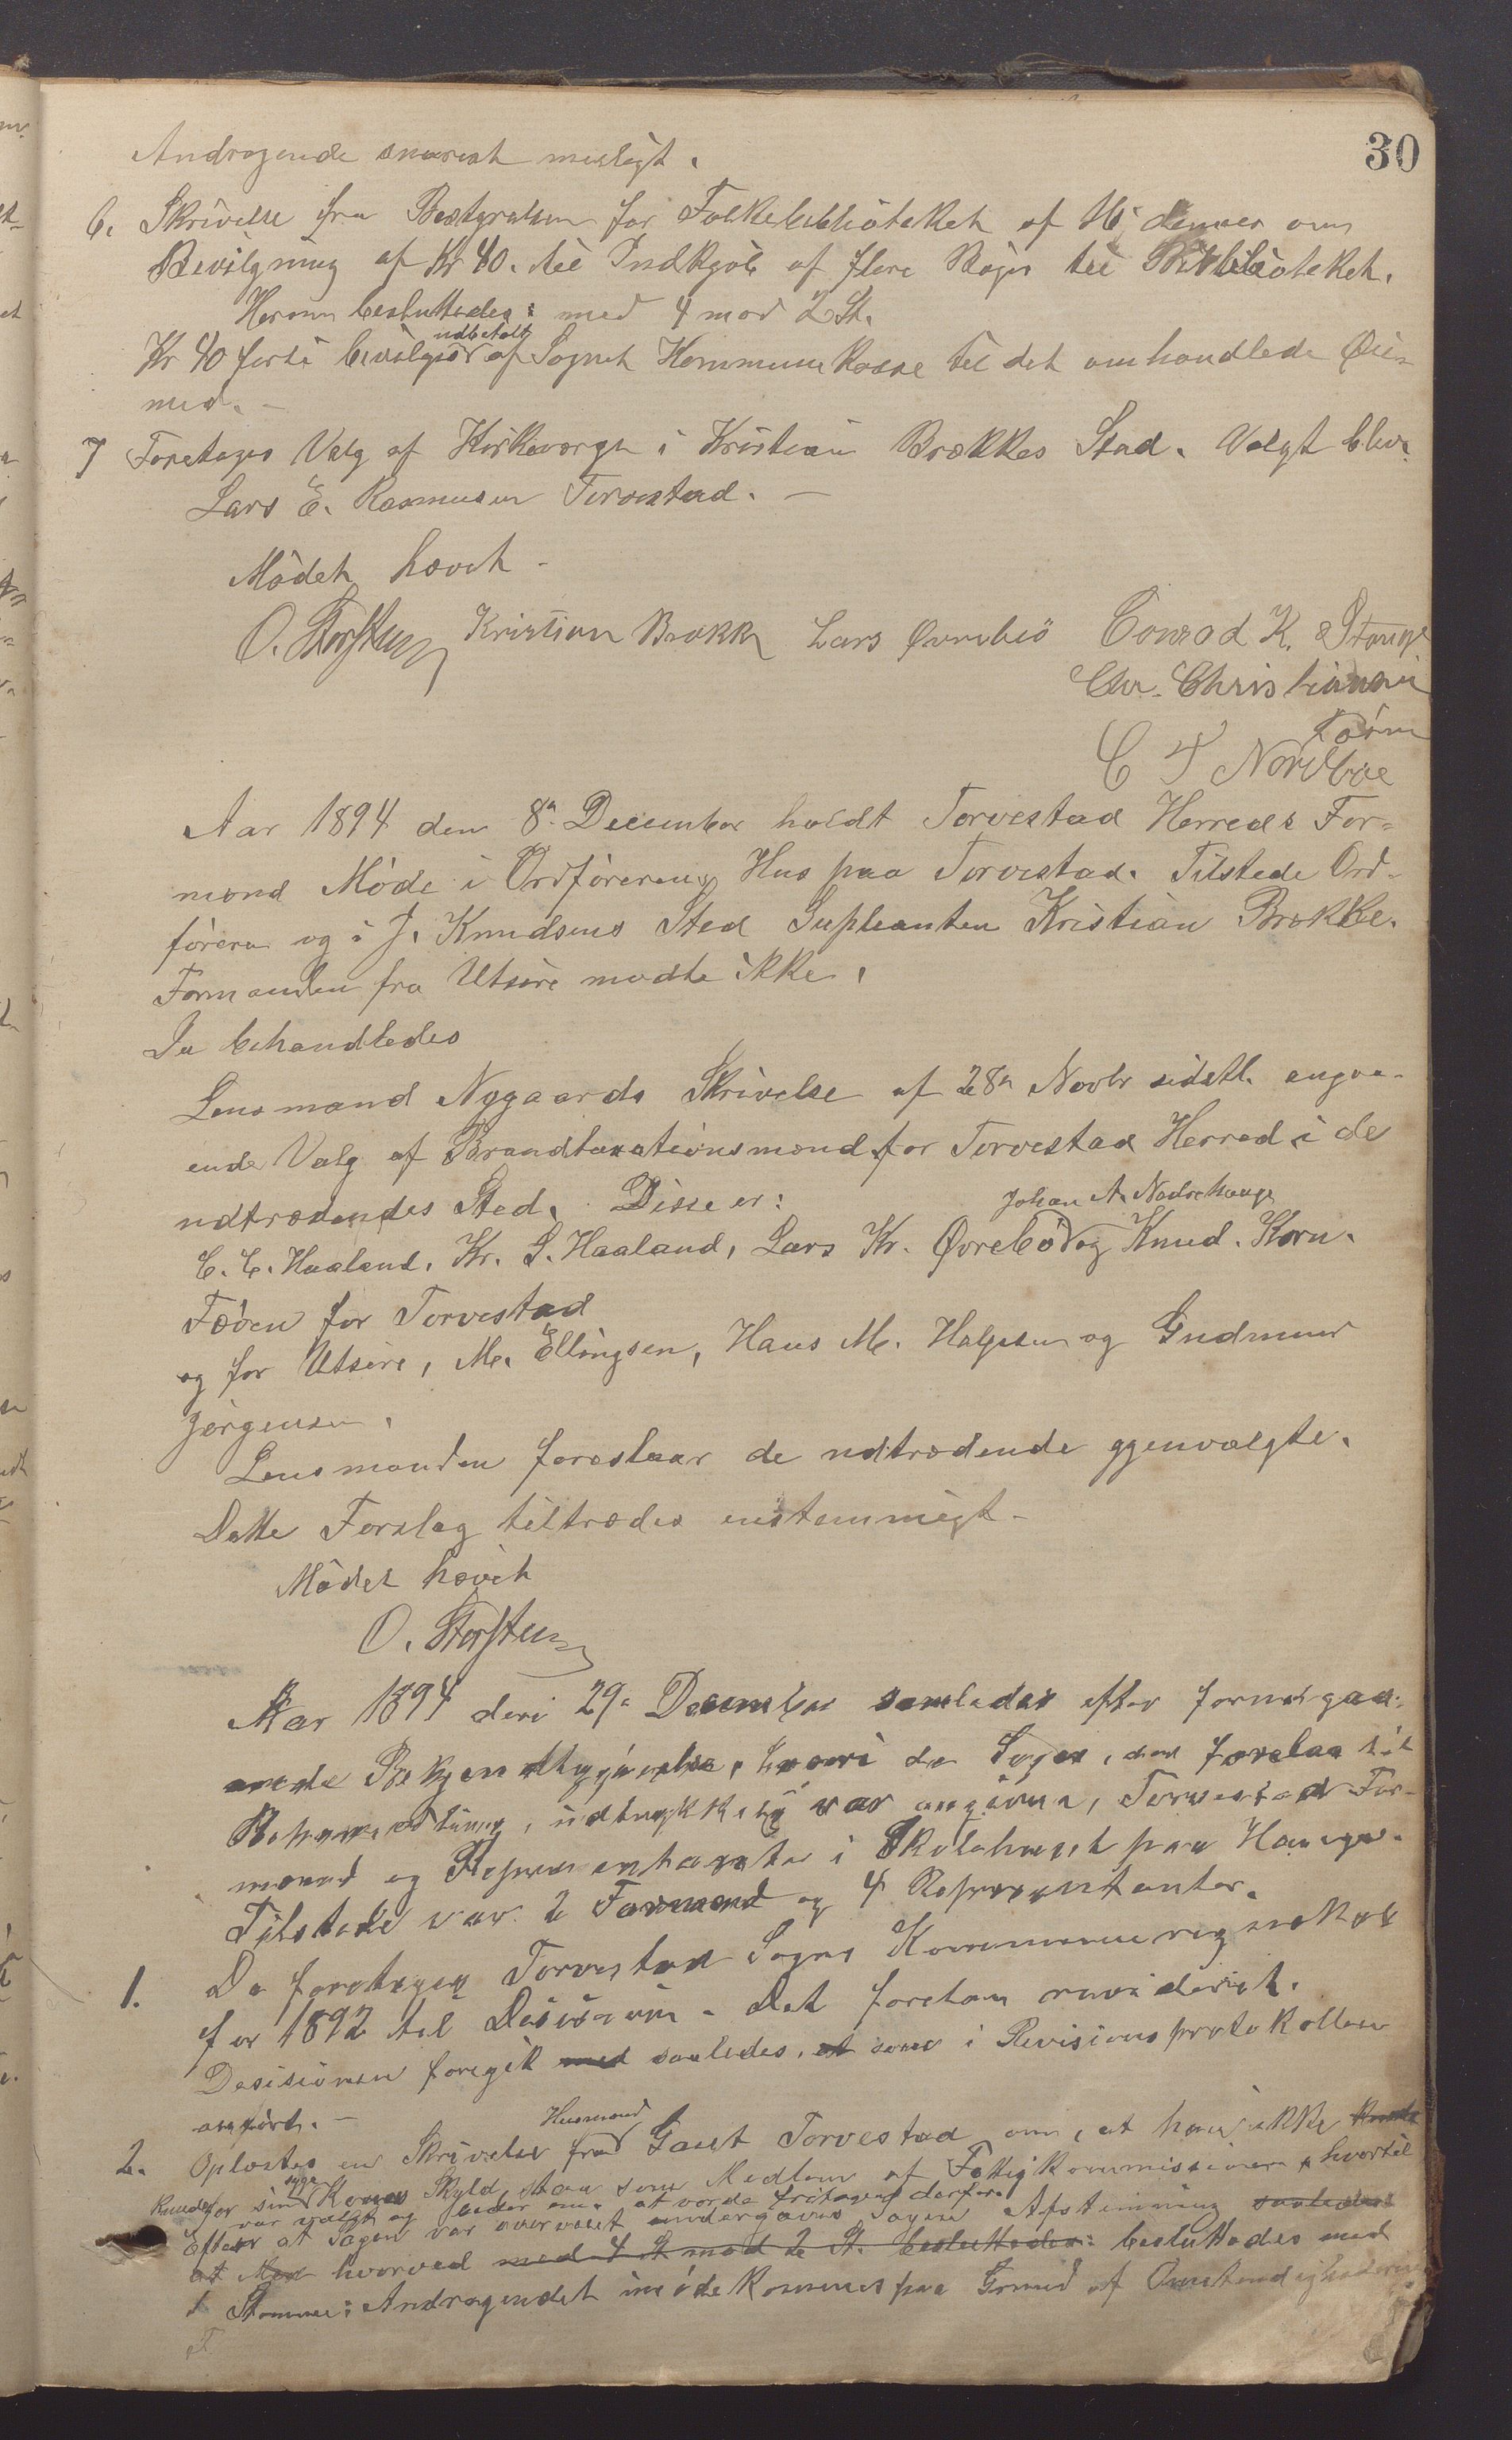 30
Andragende snarest muligt.
6. Skrivelse fra Bestyrelsen for Folkebibliotheket af 16 dennes om
Bevilgning af Kr 40. til Indkjøb af flere Bøger til Bibliotheket.
Herom besluttedes: med 4 mod 2 St.
udbetalt
Kr 40 førti bevilges af Sognets Kommunekasse til det omhandlede Øie-
med. -
7 Foretages Valg af Kirkeværge i Kristian Brækkes Sted. Valgt blev
Lars E. Rasmusen Torvestad. -
Mødet hævet -
O. Storsteen Kristian Brækk Lars Øvrebø Conrad K. Stange
Chr. Christiansen
C T Nordboe
Aar 1894 den 8de December holdt Torvestad Herreds For-
mænd Møde i Ordførerens Hus paa Torvestad. Tilstede Ord-
føreren og i J. Knudsens Sted Supleanten Kristian Brække.
Formanden fra Utsire mødte ikke.
Da behandledes
Lensmand Nygaards Skrivelse af 28de Novbr sidstl. angaa-
ende Valg af Brandtaxationsmænd for Torvestad Herred i de
udtrædendes Sted. Disse er:
Johan A.
C. C. Haaland, Kr. S. Haaland, Lars Kr. Øvrebø og Knud. Korn.
Føden for Torvestad
og for Utsire, M. Ellingsen, Hans M. Helgesen og Gudmund
Jørgensen.
Lensmanden foreslaar de udtrædende gjenvalgte.
Dette Forslag tiltrædes enstemmigt -
Mødet hævet
O. Storsteen
Aar 1894 den 29de December samledes efter forudgaa-
ende Bekjendtgjørelse, hvori de Sager, der forelaa til
Behandling, udtrykkelig var angivne, Torvestad For-
mænd og Repræsentanter i Skolehuset paa Hauge.
Tilstede var 2 Formænd og 4 Repræsentanter.
1. Da foretages Torvestad Sogns Kommuneregnskab
for 1892 til Desision. Det foretoes revideret.
Desisionen foregik med saaledes, at som i Revisionsprotokollen
anført. -
Husmand
2. Oplæstes en Skrivelse fra Gaut Torvestad om, at han ikke kunde
syge
Kunde for sin Kones Skyld staa som Medlem af Fattigkommissionen, hvortil
var valgt og beder om at vorde fritagen derfor.
Efter at Sagen var overveiet undergaves Sagen Afstemning saaledes
at Med hvorved med 4 St mod 2 St. besluttedes: besluttedes med
Stemmer: Andragendet imødekommes paa Grund af Omstændighederne